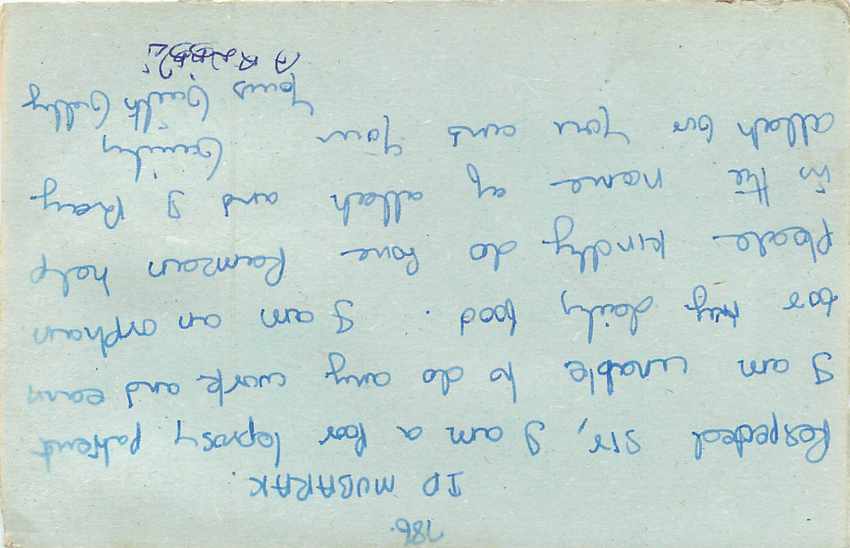 786.
ID MUBARAK
Respected Sir, I am a Poor leprosy patient
I am unable to do any work and earn
for my daily food. I am an orphan
Please kindly do some Ramzan help
in the name of allah and I Pray
allah for you and your family
yours faithfully